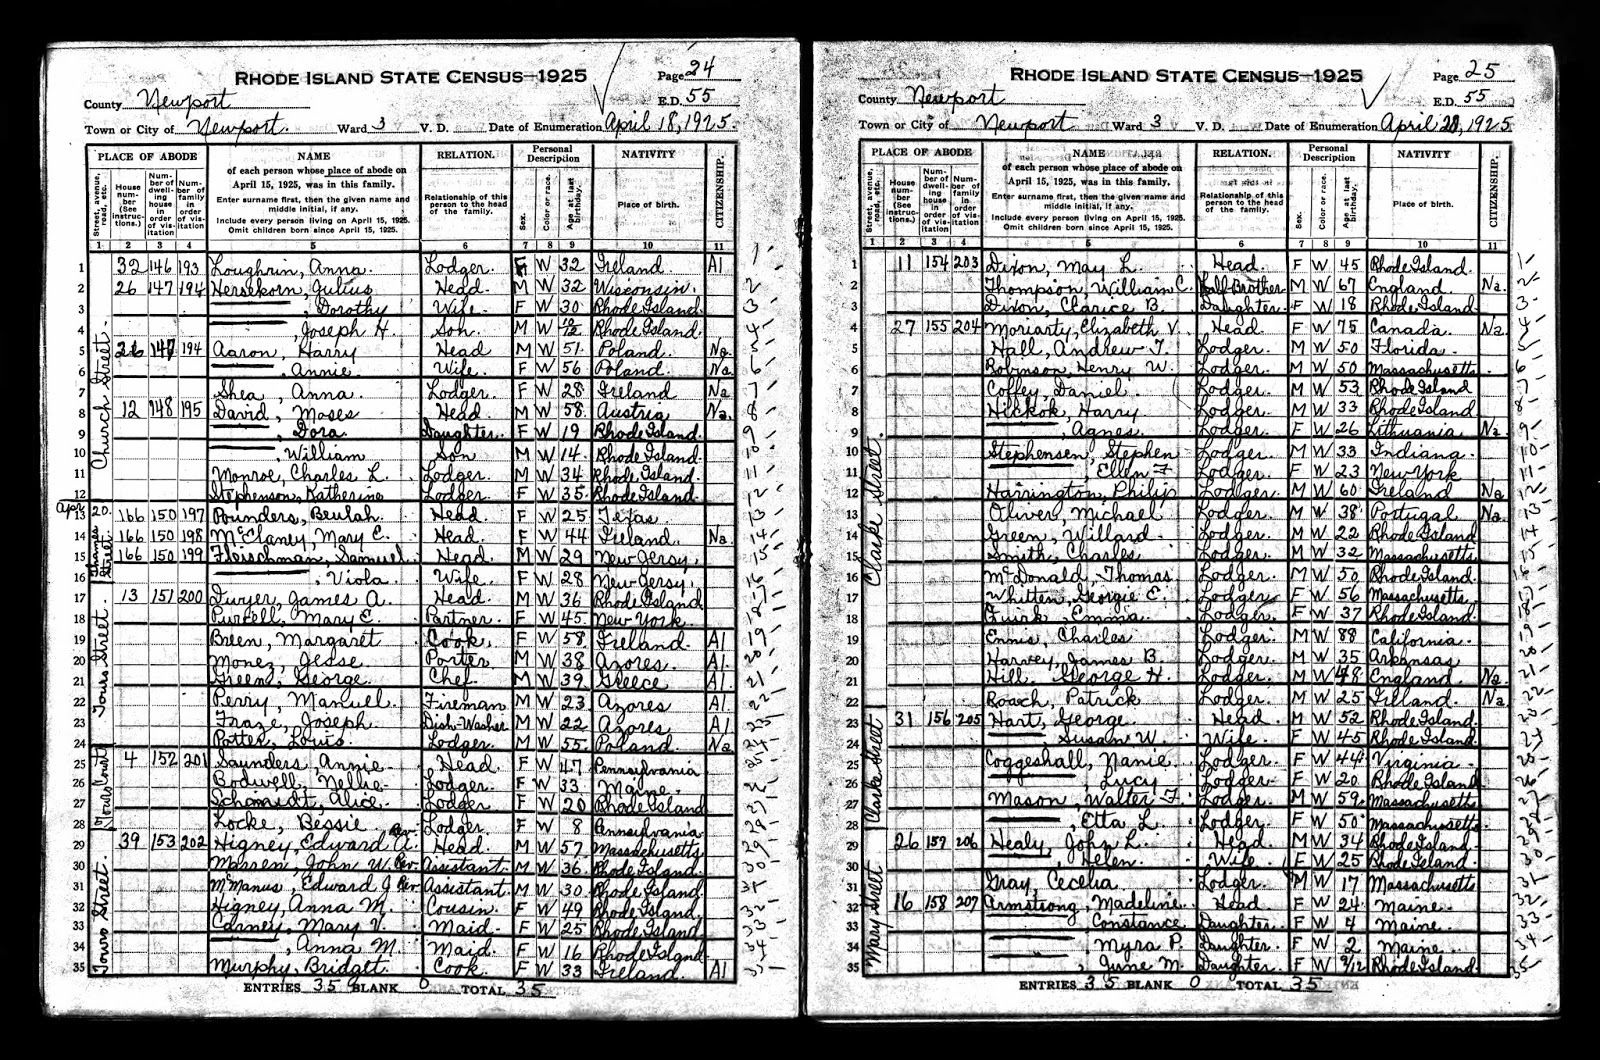 RHODE ISLAND STATE CENSUS—1925
Page 24
County Newport
E.D. 55
Town or City of Newport. Ward 3 V. D. Date of Enumeration April 18, 1925.
PLACE OF ABODE NAME RELATION. Personal Description NATIVITY CITIZENSHIP.
Street, avenue, road, etc. House number (See instructions.) Number of dwelling house in order of visitation Number of family in order of visitation
of each person whose place of abode on April 15, 1925, was in this family.
Enter surname first, then the given name and middle initial, if any.
Include every person living on April 15, 1925. Omit children born since April 15, 1925.
Relationship of this person to the head of the family.
Sex. Color or race. Age at last birthday. Place of birth.
1 2 3 4 5 6 7 8 9 10 11
Church Street.
1 32 146 193 Loughrin, Anna. Lodger. F W 32 Ireland. Al 1
2 26 147 194 Hersekorn, Julius Head. M W 32 Wisconsin. 2
3 , Dorothy Wife. F W 30 Rhode Island. 3
4 , Joseph H. Son. M W Rhode Island. 4
5 26 147 194 Aaron, Harry Head M W 51 Poland. Na. 5
6 , Annie. Wife. F W 56 Poland. Na. 6
7 Shea, Anna. Lodger. F W 28 Ireland Na 7
8 12 148 195 David, Moses Head. M W 58 Austria Na. 8
9 , Dora. Daughter. F W 19 Rhode Island. 9
10 , William Son M W 14. Rhode Island. 10
11 Monroe, Charles L. Lodger. M W 34 Rhode Island. 11
12 Stephenson, Katherine Lodger. F W 35 Rhode Island. 12
Apr 20.
Thames Street.
13 166 150 197 Pounders, Beulah. Head. F W 25 Texas. 13
14 166 150 198 McClaney, Mary E. Head. F W 44 Ireland. Na. 14
15 166 150 199 Fleischman, Samuel. Head. M W 29 New Jersy. 15
16 , Viola. Wife. F W 28 New Jersy. 16
Touro Street.
17 13 151 200 Dwyer, James A. Head. M W 36 Rhode Island 17
18 Purcell, Mary E. Partner. F W 45. New York. 18
19 Breen, Margaret Cook. F W 58. Ireland. Al 19
20 Monez, Jesse. Porter. M W 38 Azores. Al. 20
21 Green, George. Chef. M W 39 Greece Al. 21
22 Perry, Manuel. Fireman M W 23 Azores Al. 22
23 Fraze, Joseph Dish-Washer M W 22 Azores Al 23
24 Potter, Louis. Lodger. M W 55 Poland. Na. 24
Touro Court
25 4 152 201 Saunders, Annie. Head. F W 47 Pennsylvania 25
26 Bodwell, Nellie. Lodger. F W 33 Maine. 26
27 Schmidt, Alice. Lodger F W 20 Rhode Island 27
28 Locke, Bessie. Lodger. F W 8 Pennsylvania 28
Touro Street.
29 39 153 202 Higney, Edward A. Rev. Head. M W 57 Massachusetts. 29
30 Marren, John W. Rev. Assistant. M W 36. Rhode Island. 30
31 McManus, Edward J Rev. Assistant. M W 30 Rhode Island. 31
32 Higney, Anna M. Cousin. F W 49 Rhode Island. 32
33 Carney, Mary V. Maid. F W 25 Rhode Island. 33
34 , Anna M. Maid F W 16 Rhode Island 34
35 Murphy, Bridget. Cook. F W 33 Ireland. Al 35
ENTRIES 35 BLANK 0 TOTAL 35
RHODE ISLAND STATE CENSUS—1925
Page 25
County Newport
E.D. 55
Town or City of Newport Ward 3 V. D. Date of Enumeration April 20, 1925
PLACE OF ABODE NAME RELATION. Personal Description NATIVITY CITIZENSHIP.
Street, avenue, road, etc. House number (See instructions.) Number of dwelling house in order of visitation Number of family in order of visitation
of each person whose place of abode on April 15, 1925, was in this family.
Enter surname first, then the given name and middle initial, if any.
Include every person living on April 15, 1925. Omit children born since April 15, 1925.
Relationship of this person to the head of the family.
Sex. Color or race. Age at last birthday. Place of birth.
1 2 3 4 5 6 7 8 9 10 11
Clarke Street.
1 11 154 203 Dixon, May L. Head. F W 45 Rhode Island. 1
2 Thompson, William C. Half-Brother M W 67 England. Na. 2
3 Dixon, Clarice B. Daughter. F W 18 Rhode Island. 3
4 27 155 204 Moriarty, Elizabeth V. Head. F W 75 Canada. Na. 4
5 Hall, Andrew T. Lodger. M W 50 Florida. 5
6 Robinson, Henry W. Lodger. M W 50 Massachusetts. 6
7 Coffey, Daniel. Lodger. M W 53 Rhode Island 7
8 Hickok, Harry Lodger. M W 33 Rhode Island 8
9 , Agnes. Lodger. F W 26 Lithuania. Na. 9
10 Stephensen, Stephen Lodger. M W 33 Indiana. 10
11 , Ellen F. Lodger. F W 23 New York 11
12 Harrington, Philip Lodger. M W 60 Ireland Na 12
13 Oliver, Michael Lodger M W 38 Portugal Na. 13
14 Green, Willard. Lodger. M W 22 Rhode Island 14
15 Smith, Charles Lodger. M W 32 Massachusetts 15
16 McDonald, Thomas. Lodger. M W 50 Rhode Island. 16
17 Whitten, Georgie E. Lodger. F W 56 Massachusetts. 17
18 Quirk, Emma. Lodger. F W 37 Rhode Island. 18
19 Ennis, Charles Lodger. M W 88 California. 19
20 Harvey, James B. Lodger. M W 35 Arkansas 20
21 Hill, George H. Lodger. M W 48 England Na. 21
22 Roach, Patrick Lodger. M W 25 Ireland. Na. 22
Clarke Street
23 31 156 205 Hart, George. Head. M W 52 Rhode Island. 23
24 , Susan W. Wife. F W 45 Rhode Island. 24
25 Coggeshall, Nanie. Lodger. F W 44 Virginia. 25
26 , Lucy Lodger. F W 20. Rhode Island 26
27 Mason, Walter F. Lodger. M W 59 Massachusetts 27
28 , Etta L. Lodger. F W 50 Massachusetts. 28
Mary Street
29 26 157 206 Healy, John L. Head M W 34 Rhode Island. 29
30 , Helen. Wife. F W 25 Rhode Island. 30
31 Gray, Cecelia. Lodger M W 17 Massachusetts 31
32 16 158 207 Armstrong, Madeline. Head. F W 24 Maine. 32
33 , Constance Daughter. F W 4 Maine. 33
34 , Myra P. Daughter F W 2 Maine. 34
35 , June M. Daughter. F W 9/12 Rhode Island. 35
ENTRIES 35 BLANK 0 TOTAL 35